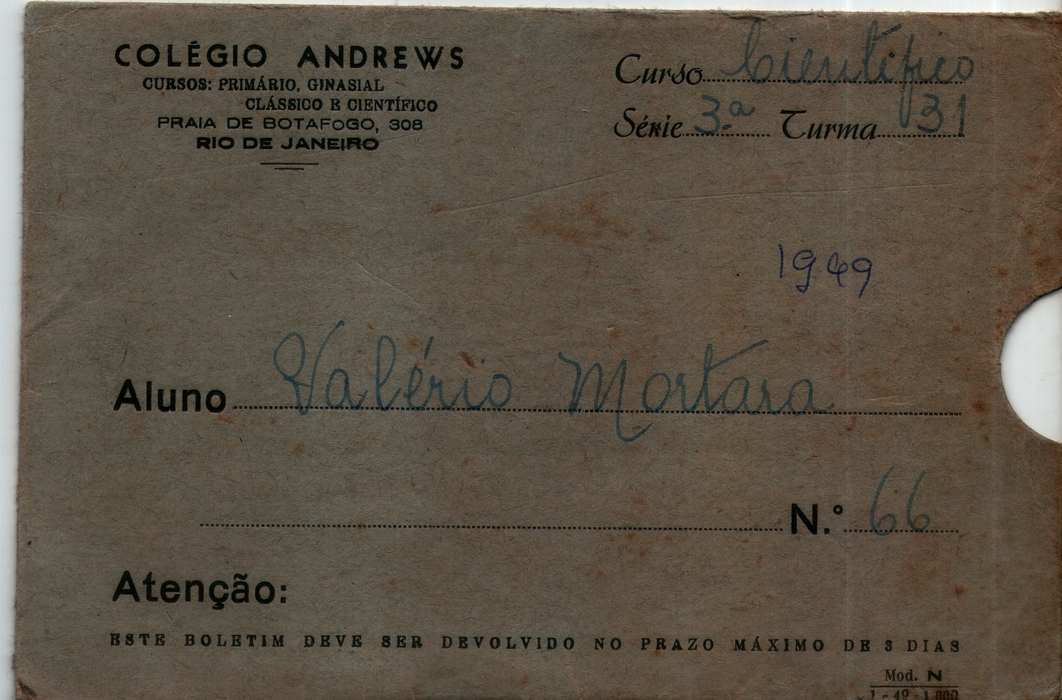 COLÉGIO ANDREWS
CURSOS: PRIMÁRIO, GINASIAL
CLÁSSICO E CIENTÍFICO
PRAIA DE BOTAFOGO, 308
RIO DE JANEIRO
Curso Científico
Série 3.ª Turma 31
1949
Aluno Valério Mortara
N.º 66
Atenção:
ESTE BOLETIM DEVE SER DEVOLVIDO NO PRAZO MÁXIMO DE 3 DIAS
Mod. N
1 - 49 - 1.000